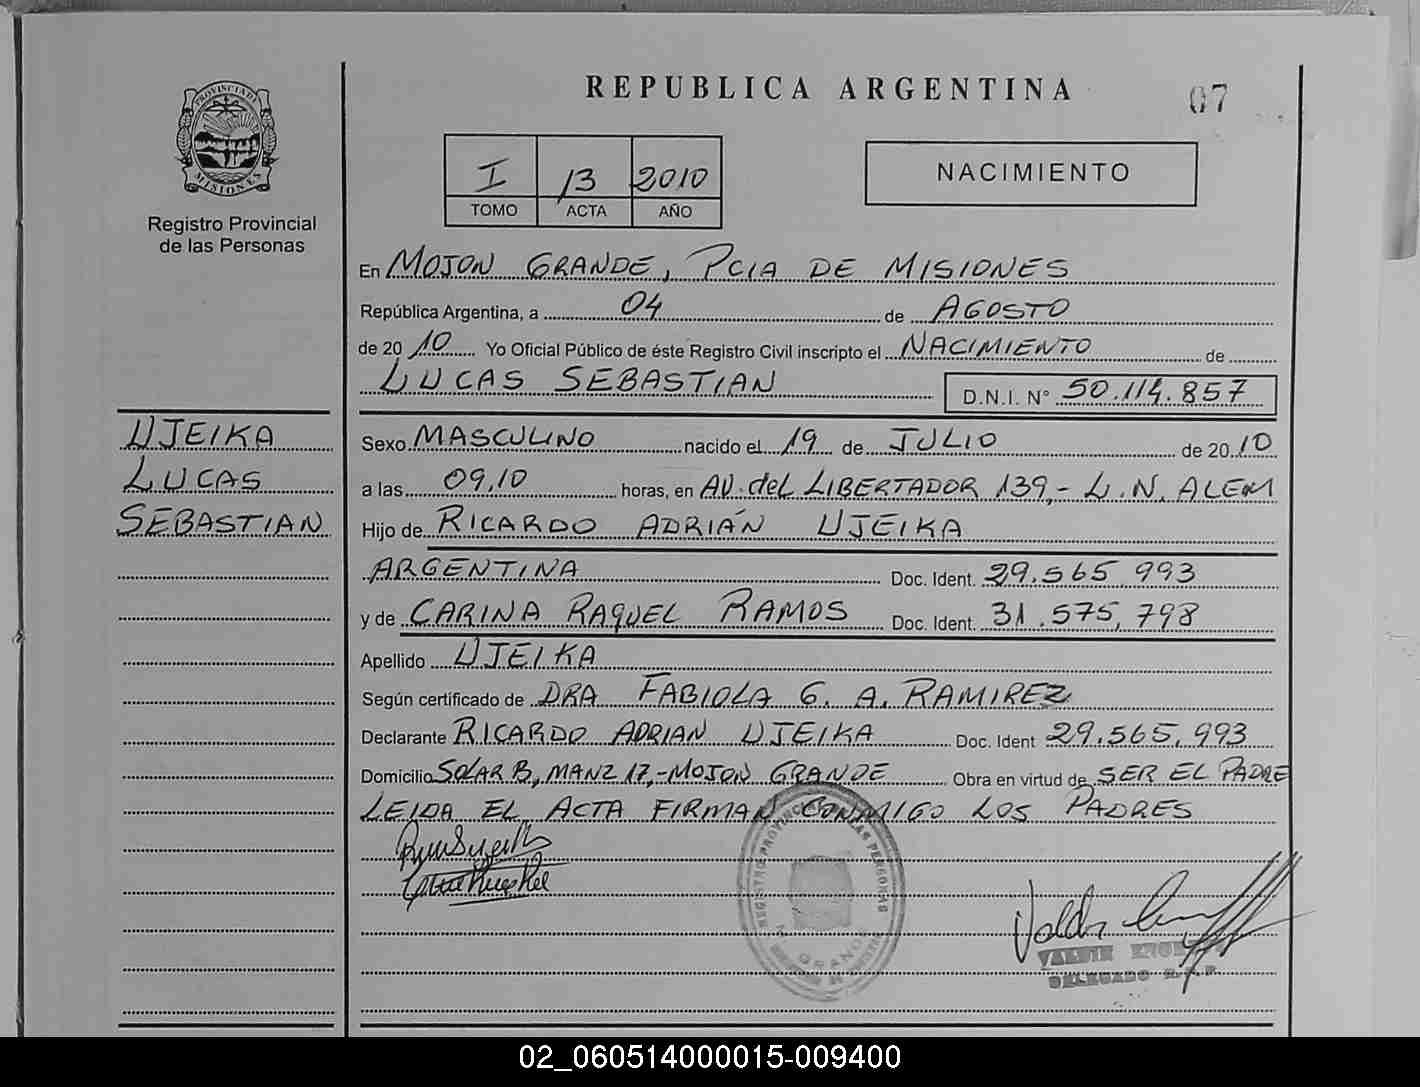 REPUBLICA ARGENTINA
07
PROVINCIA DE
MISIONES
Registro Provincial
de las Personas
I 13 2010
TOMO ACTA AÑO
NACIMIENTO
En MOJON GRANDE, PCIA DE MISIONES
República Argentina, a 04 de AGOSTO
de 20 10 Yo Oficial Público de éste Registro Civil inscripto el NACIMIENTO de
LUCAS SEBASTIAN D.N.I. N° 50.114.857
UJEIKA
LUCAS
SEBASTIAN
Sexo MASCULINO nacido el 19 de JULIO de 20 10
a las 09,10 horas, en AV. del LIBERTADOR 139,- L.N. ALEM
Hijo de RICARDO ADRIÁN UJEIKA
ARGENTINA Doc. Ident. 29.565.993
y de CARINA RAQUEL RAMOS Doc. Ident. 31.575,798
Apellido UJEIKA
Según certificado de DRA FABIOLA G. A. RAMIREZ
Declarante RICARDO ADRIAN UJEIKA Doc. Ident 29.565.993
Domicilio SOLAR B, MANZ 17,-MOJON GRANDE Obra en virtud de SER EL PADRE
LEIDA EL ACTA FIRMAN CONMIGO LOS PADRES
REGISTRO PROVINCIAL DE LAS PERSONAS
GRANDE
MISIONES
VALDIR
DELEGADO R.P.P.
02_060514000015-009400